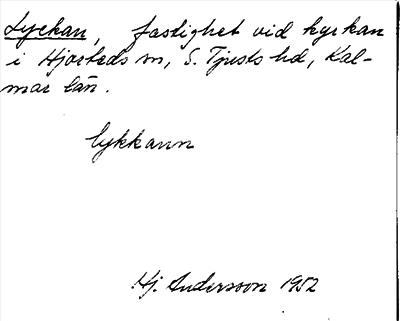 Lyckan, fastighet vid kyrkan
i Hjorteds sn, S. Tjusts hd, Kal-
mar län.
lykkann
Hj. Andersson 1952